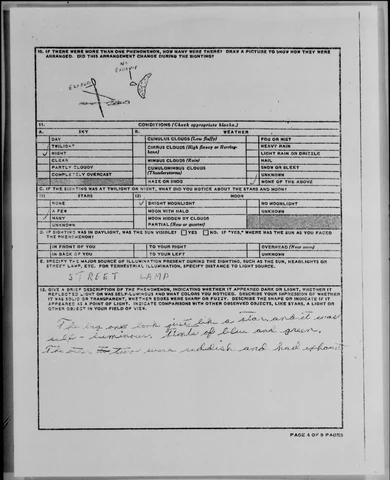 10. IF THERE WERE MORE THAN ONE PHENOMENON, HOW MANY WERE THERE? DRAW A PICTURE TO SHOW HOW THEY WERE
ARRANGED. DID THIS ARRANGEMENT CHANGE DURING THE SIGHTING?
NO
EXHAUST
EXHAUST
11. CONDITIONS (Check appropriate blocks.)
A. SKY B. WEATHER
DAY CUMULUS CLOUDS (Low fluffy) FOG OR MIST
TWILIGHT CIRRUS CLOUDS (High fleecy or Herring- HEAVY RAIN
NIGHT bone) LIGHT RAIN OR DRIZZLE
CLEAR NIMBUS CLOUDS (Rain) HAIL
PARTLY CLOUDY CUMULONIMBUS CLOUDS SNOW OR SLEET
COMPLETELY OVERCAST (Thunderstorms) UNKNOWN
HAZE OR SMOG NONE OF THE ABOVE
C. IF THE SIGHTING WAS AT TWILIGHT OR NIGHT, WHAT DID YOU NOTICE ABOUT THE STARS AND MOON?
(1) STARS (2) MOON
NONE BRIGHT MOONLIGHT NO MOONLIGHT
A FEW MOON WITH HALO UNKNOWN
MANY MOON HIDDEN BY CLOUDS
UNKNOWN PARTIAL (New or quarter)
D. IF SIGHTING WAS IN DAYLIGHT, WAS THE SUN VISIBLE? YES NO. IF "YES," WHERE WAS THE SUN AS YOU FACED
THE PHENOMENON?
IN FRONT OF YOU TO YOUR RIGHT OVERHEAD (Near noon)
IN BACK OF YOU TO YOUR LEFT UNKNOWN
E. SPECIFY THE MAJOR SOURCE OF ILLUMINATION PRESENT DURING THE SIGHTING, SUCH AS THE SUN, HEADLIGHTS OR
STREET LAMP, ETC. FOR TERRESTRIAL ILLUMINATION, SPECIFY DISTANCE TO LIGHT SOURCE.
STREET LAMP
12. GIVE A BRIEF DESCRIPTION OF THE PHENOMENON, INDICATING WHETHER IT APPEARED DARK OR LIGHT, WHETHER IT
REFLECTED LIGHT OR WAS SELF-LUMINOUS AND WHAT COLORS YOU NOTICED. DESCRIBE YOUR IMPRESSION OF WHETHER
IT WAS SOLID OR TRANSPARENT, WHETHER EDGES WERE SHARP OR FUZZY. DESCRIBE THE SHAPE OR INDICATE IF IT
APPEARED AS A POINT OF LIGHT. INDICATE COMPARISONS WITH OTHER OBSERVED OBJECTS, LIKE STARS, A LIGHT OR
OTHER OBJECT IN YOUR FIELD OF VIEW.
The big one look just like a star and it was
self - luminous. Tints of blue and green.
The two were reddish and had exhaust
PAGE 4 OF 9 PAGES